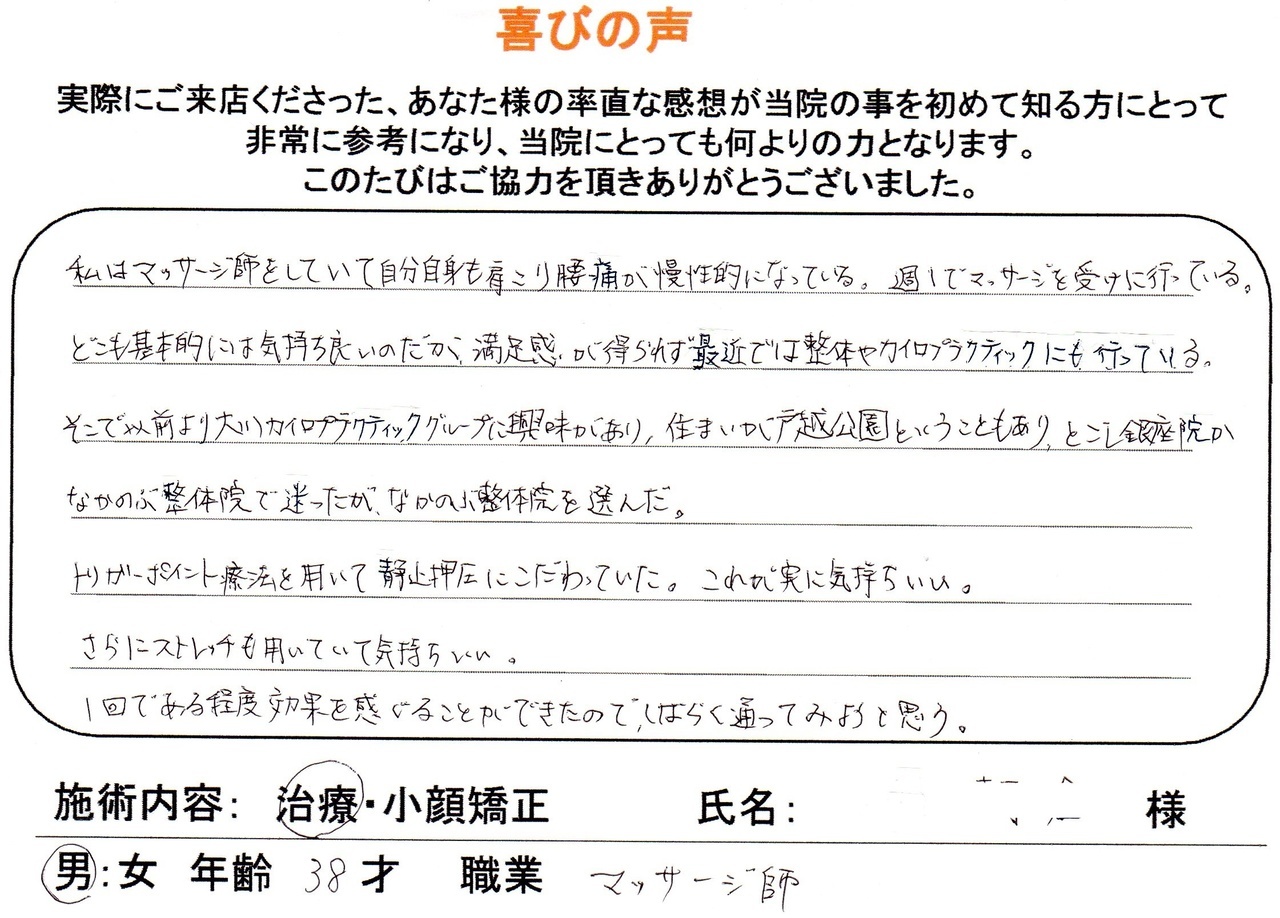 喜びの声
実際にご来店くださった、あなた様の率直な感想が当院の事を初めて知る方にとって
非常に参考になり、当院にとっても何よりの力となります。
このたびはご協力を頂きありがとうございました。
私はマッサージ師をしていて自分自身も肩こり腰痛が慢性的になっている。週1でマッサージを受けに行っている。
どこも基本的には気持ち良いのだが、満足感が得られず最近では整体やカイロプラクティックにも行っている。
そこで以前より大川カイロプラクティックグループに興味があり、住まいが戸越公園ということもあり、とごし銀座院か
なかのぶ整体院で迷ったが、なかのぶ整体院を選んだ。
トリガーポイント療法を用いて静止押圧にこだわっていた。これが実に気持ちいい。
さらにストレッチも用いていて気持ちいい。
1回である程度効果を感ぐることができたので、しばらく通ってみようと思う。
施術内容: 治療・小顔矯正 氏名: 様
男:女 年齢 38才 職業 マッサージ師